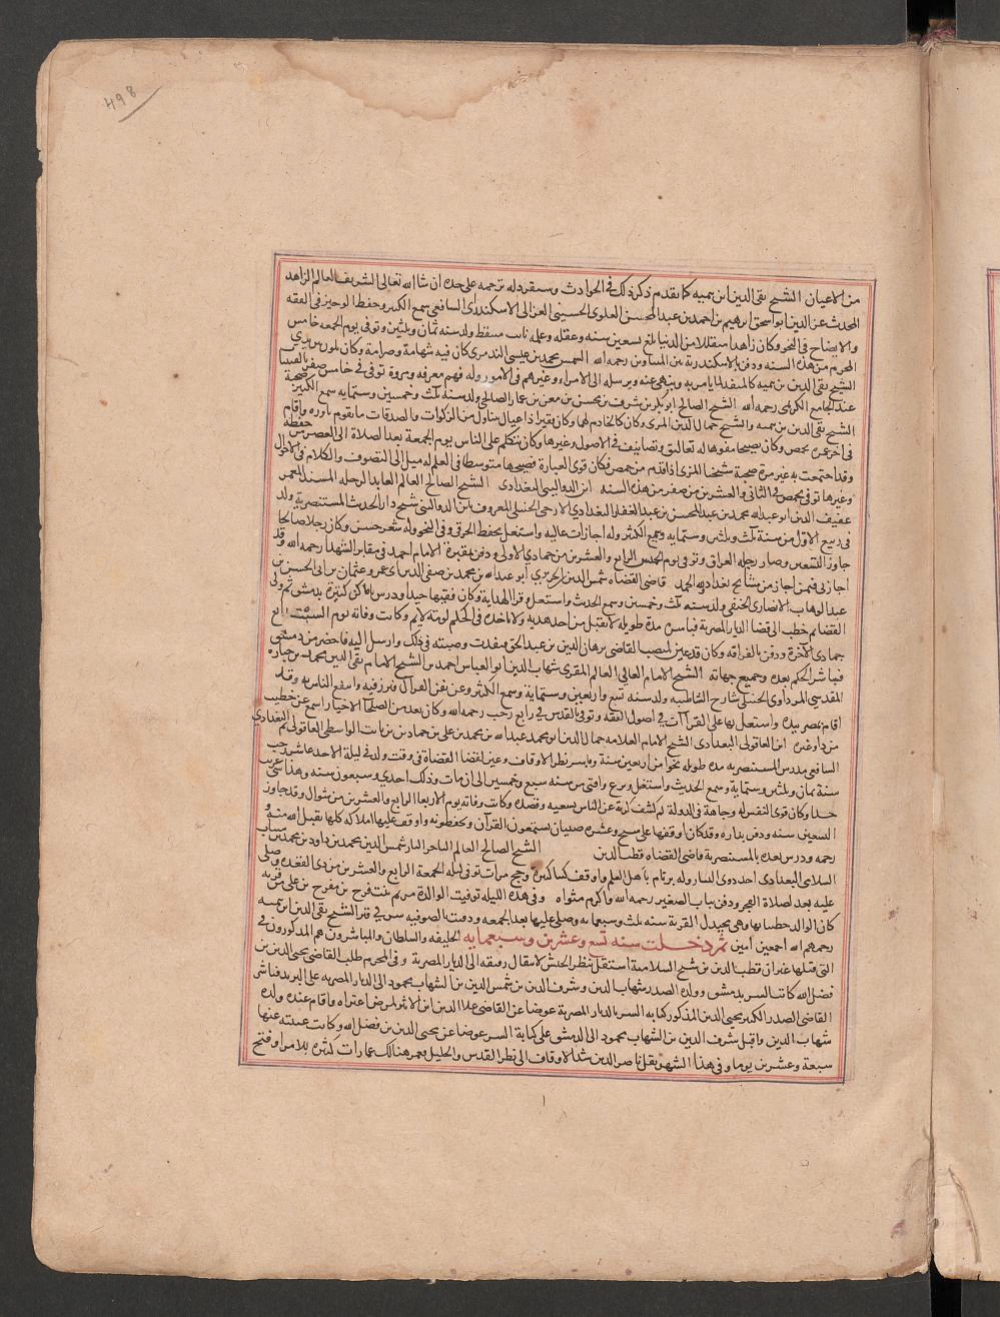 498
من الاعيان الشيخ تقى الدين ابن تيميه كما تقدم ذكر ذلك فى الحوادث وسنفرد له ترجمه على حده ان شا الله تعالى الشريف العالم الزاهد
المحدث عز الدين ابو اسحق ابرهيم بن احمد بن عبد المحسن العلوى الحسينى العراقى الاسكندرى الشافعى سمع الكثير وحفظ الوجيز فى الفقه
والايضاح فى النحو وكان زاهدا متقللا من الدنيا بلغ تسعين سنه وعقله وعلمه ثابت متيقظ ولد سنه ثمان وثلثين وتوفى يوم الجمعه خامس
المحرم من هذه السنه ودفن بالاسكندرية بين رحمه الله الشمس محمد بن عيسى التدمرى كان فيه شهامة وصرامة وكان
الشيخ تقى الدين بن تيميه كالمنفذ لما يامر به وينهى عنه ويرسله الى الامراء وغيرهم فى الامور وله فهم معرفه وتوفى فى خامس صفر
عند الجامع الكريمى رحمه الله الشيخ الصالح ابو بكر بن شرف بن محسن بن معن بن عمار الصالحى ولد سنه ثلث وخمسين وستمايه سمع الكثير
الشيخ تقى الدين بن تيميه والشيخ جمال الدين المزى وكان كالخادم لهما وكان فقيرا ذا عيال يتناول من الزكوات والصدقات ما يقوم باوده واقام
فى اخر عمره بحمص وكان فصيحا مفوها له تعاليق وتصانيف فى الاصول وغيرها وكان يتكلم على الناس يوم الجمعة بعد الصلاة الى العصر من حفظه
وقد اجتمعت به غير مرة صحبة شيخنا المزى اذا قدم من حمص فكان قوى العبارة فصيحها متوسطا فى العلم له ميل الى التصوف والكلام فى الاحوال
وغيرها توفى بحمص فى الثانى والعشرين من صفر من هذه السنه ابن الدواليبى البغدادى الشيخ الصالح العالم العابد الرحله المسند المعمر
عفيف الدين ابو عبد الله محمد بن عبد المحسن بن عبد الغفار البغدادى الازجى الحنبلى المعروف بابن الدواليبى شيخ دار الحديث المستنصرية ولد
فى ربيع الاول من سنة ثلث وثلثين وستمايه وسمع الكثير وله اجازات عاليه واشتغل بحفظ الخرقى وفى النحو وله شعر حسن وكان رجلا صالحا
جاوز التسعين وصار رحله العراق وتوفى يوم الخميس الرابع والعشرين من جمادي الاولى ودفن بمقبرة الامام احمد فى مقابر الشهدا رحمه الله وقد
اجازنى فيمن اجاز من مشايخ بغداد ولله الحمد قاضى القضاه شمس الدين الحريرى ابو عبد الله بن محمد بن صفى الدين ابى عمرو عثمان بن ابى الحسن بن
عبد الوهاب الانصارى الحنفى ولد سنه ثلث وخمسين وسمع الحديث واشتغل وقرا الهداية وكان فقيها جيدا ودرس باماكن كثيرة بدمشق ثم ولى
القضا ثم خطب الى قضا الديار المصرية فباشره مدة طويله لا يقبل من احد هديه ولا تاخذه فى الحكم لومة لايم وكانت وفاته يوم السبت رابع
جمادى الآخرة ودفن بالقرافة وكان قد عين لمنصبه القاضى برهان الدين بن عبد الحق فنفذت وصيته فى ذلك وارسل اليه فاحضر من دمشق
فباشر الحكم بعده وجميع جهاته الشيخ الامام العالم المقرى شهاب الدين ابو العباس احمد بن الشيخ الامام تقى الدين محمد بن جباره
المقدسى المرداوى الحنبلى شارح الشاطبيه ولد سنه تسع واربعين وستماية وسمع الكثير وعنى بفن القراآت فبرز فيه وانتفع الناس به وقد
اقام بمصر مده واشتغل بها على القرافى فى اصول الفقه وتوفى بالقدس فى رابع رجب رحمه الله وكان يعد من الصلحا الاخيار سمع عن خطيب
مردا وغيره ابن العاقولى البغدادى الشيخ الامام العلامه جمال الدين ابو محمد عبد الله بن محمد بن على بن حماد بن ثابت الواسطى العاقولى ثم البغدادى
الشافعى مدرس المستنصريه مده طويله نحوا من اربعين سنة وباشر نظر الاوقاف وعين لقضا القضاة فى وقت ولد فى ليلة الاحد عاشر رجب
سنة ثمان وثلثين وستماية وسمع الحديث واشتغل وبرع وافتى من سنه سبع وخمسين الى ان مات وذلك احدي وسبعون سنه وهذا شى غريب
جدا وكان قوى النفس له وجاهة فى الدولة كم كشف كربة عن الناس بسعيه وقصده وكانت وفاته يوم الاربعا الرابع والعشرين من شوال وقد جاوز
التسعين سنه ودفن بداره وقد كان اوقفها على شيخ وعشره صبيان يستمعون القرآن ويحفظونه واوقف عليها املاكه كلها تقبل الله منه و
رحمه ودرس بعده بالمستنصرية قاضى القضاه قطب الدين الشيخ الصالح العالم التاجر البار شمس الدين محمد بن داود بن محمد بن
السلامى البغدادى احد ذوى اليسار وله بر تام باهل العلم واوقف كتبا كثيرة وحج مرات توفى ليله الجمعة الرابع والعشرين من ذى القعده وصلى
عليه بعد صلاة الفجر ودفن بباب الصغير رحمه الله واكرم مثواه وفى هذه الليله توفيت الوالدة مريم بنت فرح بن مفرح بن على من قريه
كان الوالد خطيبا بها وهى مجيدل القرية سنه ثلث وسبعمايه وصلى عليها بعد الجمعه ودفنت بالصوفيه شرقى قبر الشيخ تقى الدين ابن تيميه
رحمهم الله اجمعين امين ثم دخلت سنه تسع وعشرين وسبعمايه الخليفه والسلطان والمباشرون هم المذكورون فى
التى قبلها غير ان قطب الدين بن شيخ السلامية استقل بنظر الجيش لانتقال رفيقه الى الديار المصرية وفى المحرم طلب القاضى محيى الدين بن
فضل الله كاتب السر بدمشق وولده الصدر شهاب الدين وشرف الدين بن شمس الدين بن الشهاب محمود الى الديار المصريه على البريد فباشر
القاضى الصدر الكبير محيى الدين المذكور كتابه السر بالديار المصرية عوضا عن القاضى علا الدين ابن الاثير لمرض اعتراه واقام عنده ولده
شهاب الدين واقبل شرف الدين بن الشهاب محمود الى دمشق على كتابة السر عوضا عن محيى الدين بن فضل الله وكانت غيبته عنها
سبعة وعشرين يوما وفى هذا الشهر نقل ناصر الدين شد الاوقاف الى نظر القدس والخليل فعمر هنالك عمارات كثيره وفتح